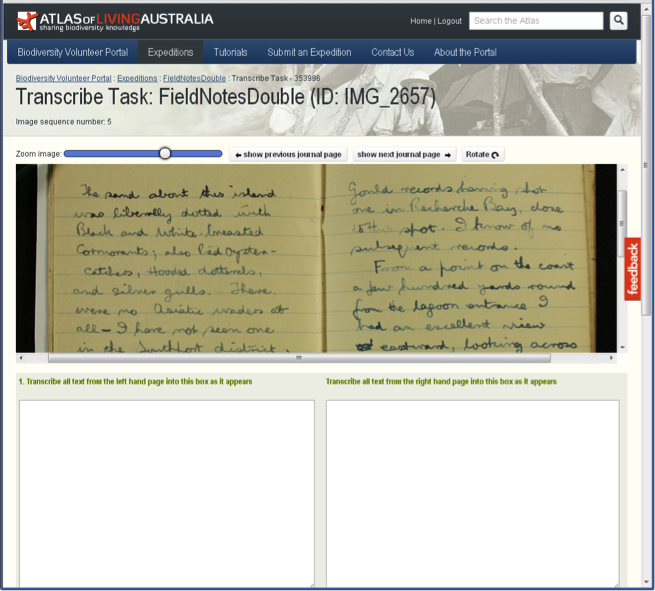 ATLAS OF LIVING AUSTRALIA
sharing biodiversity knowledge
Home | Logout
Search the Atlas
Biodiversity Volunteer Portal
Expeditions
Tutorials
Submit an Expedition
Contact Us
About the Portal
Biodiversity Volunteer Portal : Expeditions : FieldNotesDouble : Transcribe Task - 353996
Transcribe Task: FieldNotesDouble (ID: IMG_2657)
Image sequence number: 5
Zoom image:
show previous journal page
show next journal page
Rotate
The sand about this island
was liberally dotted with
Black and White-breasted
Cormorants, also Pied Oyster-
catchers, Hooded dotterels,
and silver gulls. There
were no Asiatic waders at
all - I have not seen one
in the Southport district.
Gould records having shot
one in Recherche Bay, close
to the spot. I know of no
subsequent records.
From a point on the coast
a few hundred yards round
from the lagoon entrance I
had an excellent view
eastward, looking across
feedback
1. Transcribe all text from the left hand page into this box as it appears
Transcribe all text from the right hand page into this box as it appears